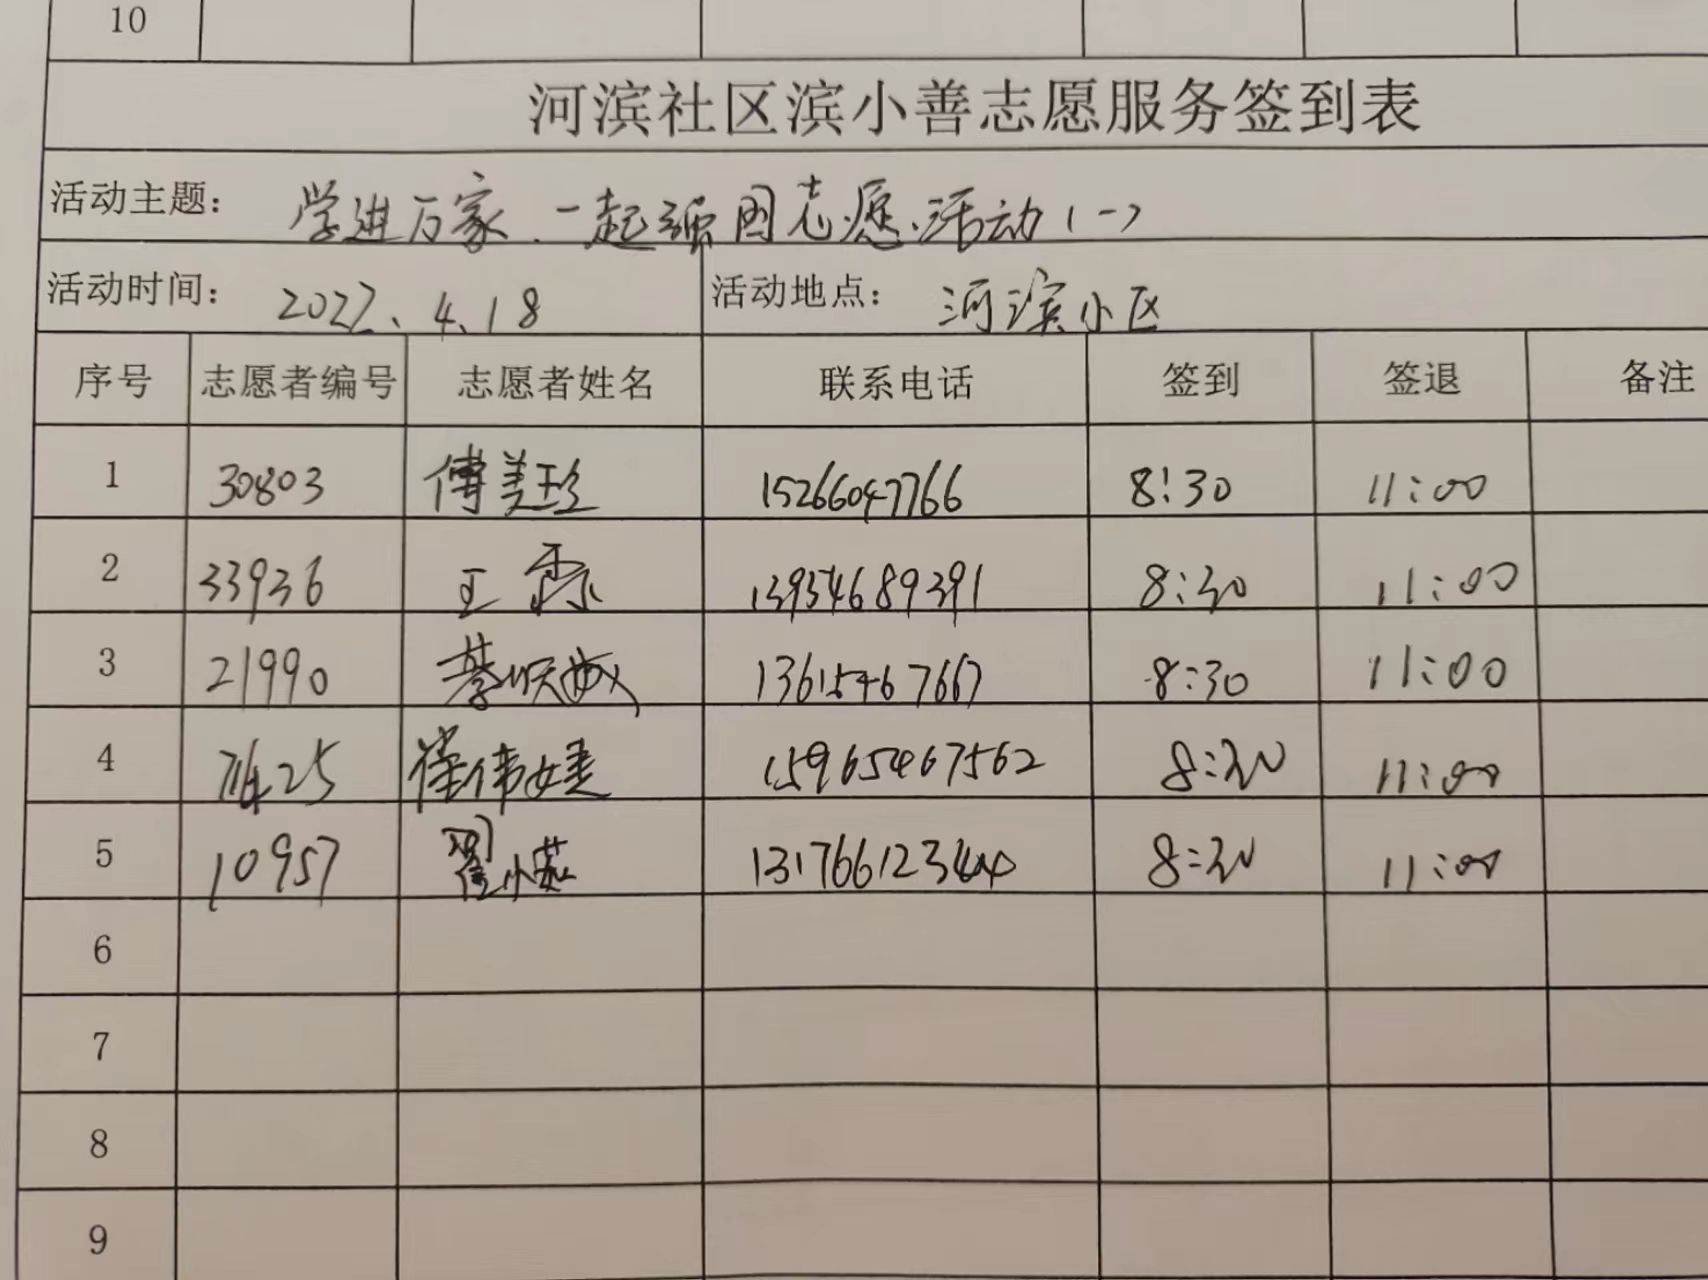 10
河滨社区滨小善志愿服务签到表
活动主题： 学进万家、一起强国志愿活动（一）
活动时间： 2022、4、18 活动地点： 河滨小区
序号 志愿者编号 志愿者姓名 联系电话 签到 签退 备注
1 30803 傅美珍 15266047766 8:30 11:00
2 33936 王霖 13954689391 8:30 11:00
3 21990 13615467667 8:30 11:00
4 崔伟婕 15965467562 8:30 11:00
5 10957 翟小茹 8:30 11:00
6
7
8
9